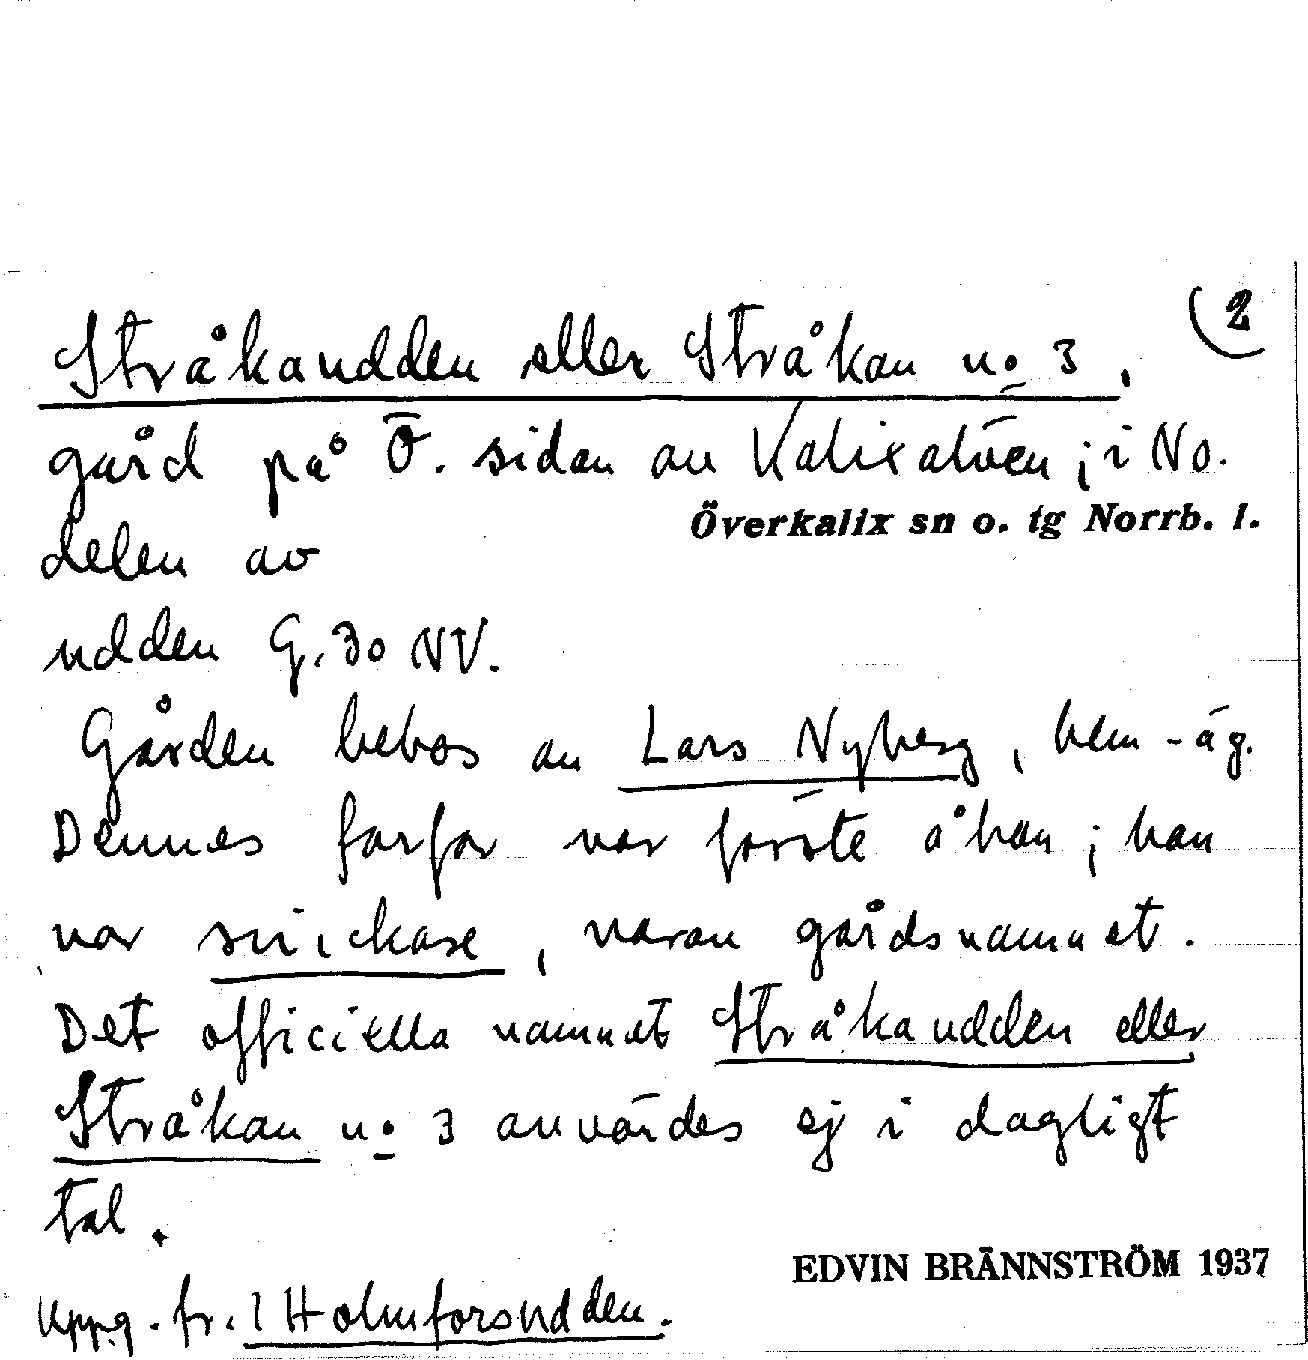 (2
Stråkaudden eller Stråkan no 3,
gård på Ö. sidan av Kalixälven; i No.
Överkalix sn o. tg Norrb. l.
delen av
udden G. 30 NV.
Gården bebos av Lars Nyberg, hem-äg.
Dennes farfar var förste åbon; han
var snickare, varav gårdsnamnet.
Det officiella namnet Stråkaudden eller
Stråkan no 3 användes ej i dagligt
tal.
EDVIN BRÄNNSTRÖM 1937
Uppg. fr. 1 Holmforsudden.